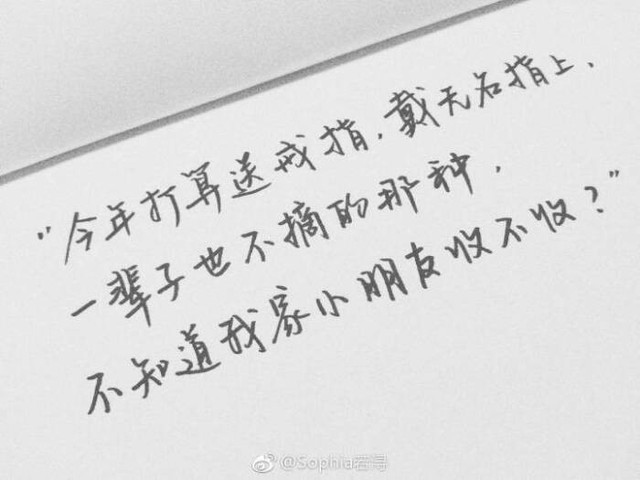 “今年打算送戒指，戴无名指上，
一辈子也不摘的那种，
不知道我家小朋友收不收？”
@Sophia若得